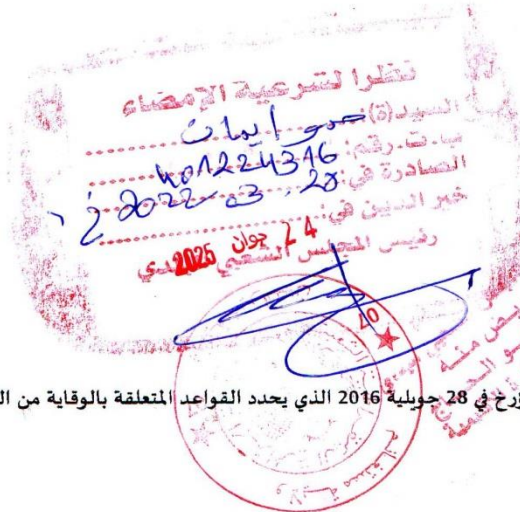 نظرا لشرعية الإمضاء
السيد(ة): حمو إيمان
ب.ت.رقم: 401224316
الصادرة في: 28.03.2022
خير الدين في: 24 جوان 2025
رئيس المجلس الشعبي البلدي
07
ؤرخ في 28 جويلية 2016 الذي يحدد القواعد المتعلقة بالوقاية من ال
ولاية مستغانم